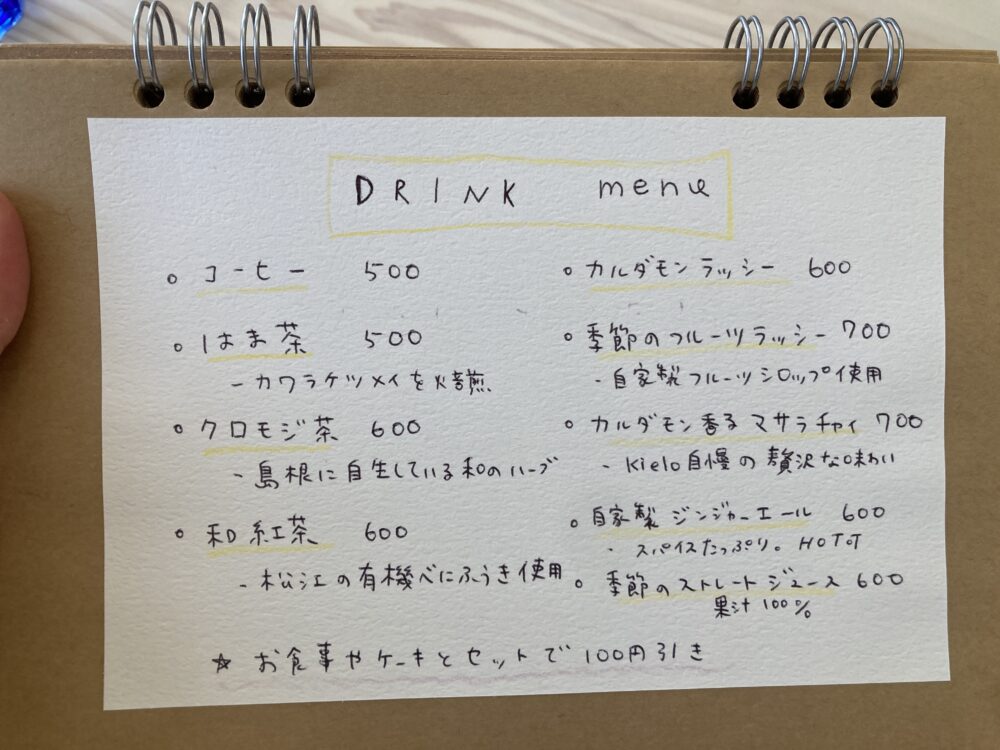 DRINK menu
○ コーヒー 500
○ はま茶 500
- カワラケツメイを焙煎
○ クロモジ茶 600
- 島根に自生している和のハーブ
○ 和紅茶 600
- 松江の有機べにふうき使用
○ カルダモンラッシー 600
○ 季節のフルーツラッシー 700
- 自家製フルーツシロップ使用
○ カルダモン香るマサラチャイ 700
- kielo自慢の贅沢な味わい
○ 自家製ジンジャーエール 600
- スパイスたっぷり。HOTOT
○ 季節のストレートジュース 600
果汁100%
☆ お食事やケーキとセットで100円引き